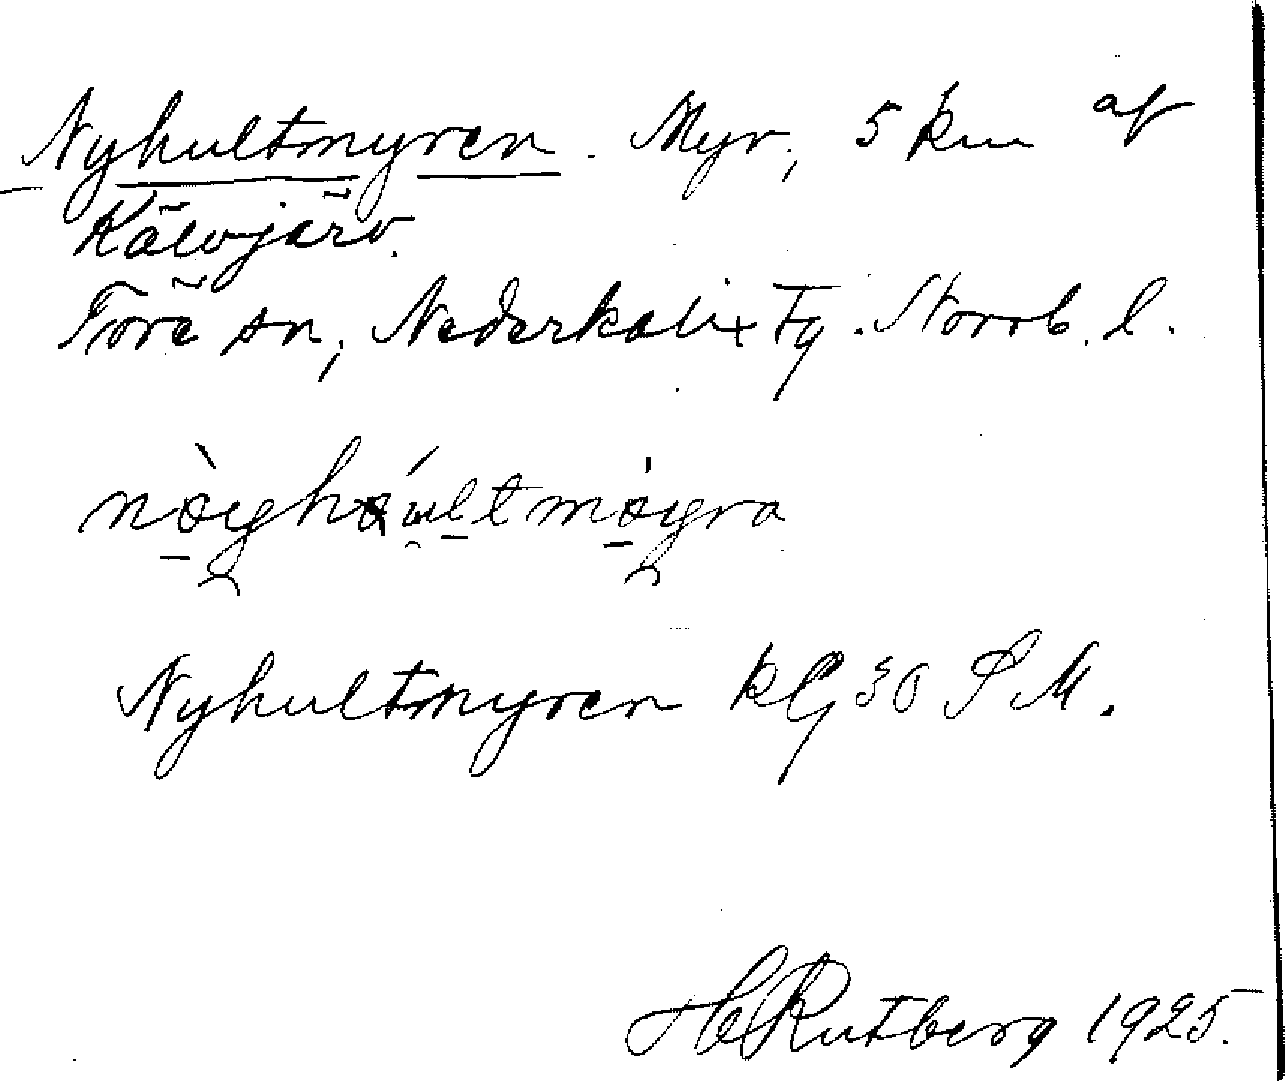 Nyhultmyren. Myr, 5 km af
Kälvjärv.
Töre sn, Nederkalix Tg. Norrb. l.
Nyhultmyren kG 30 S M.
H Rutberg 1925.